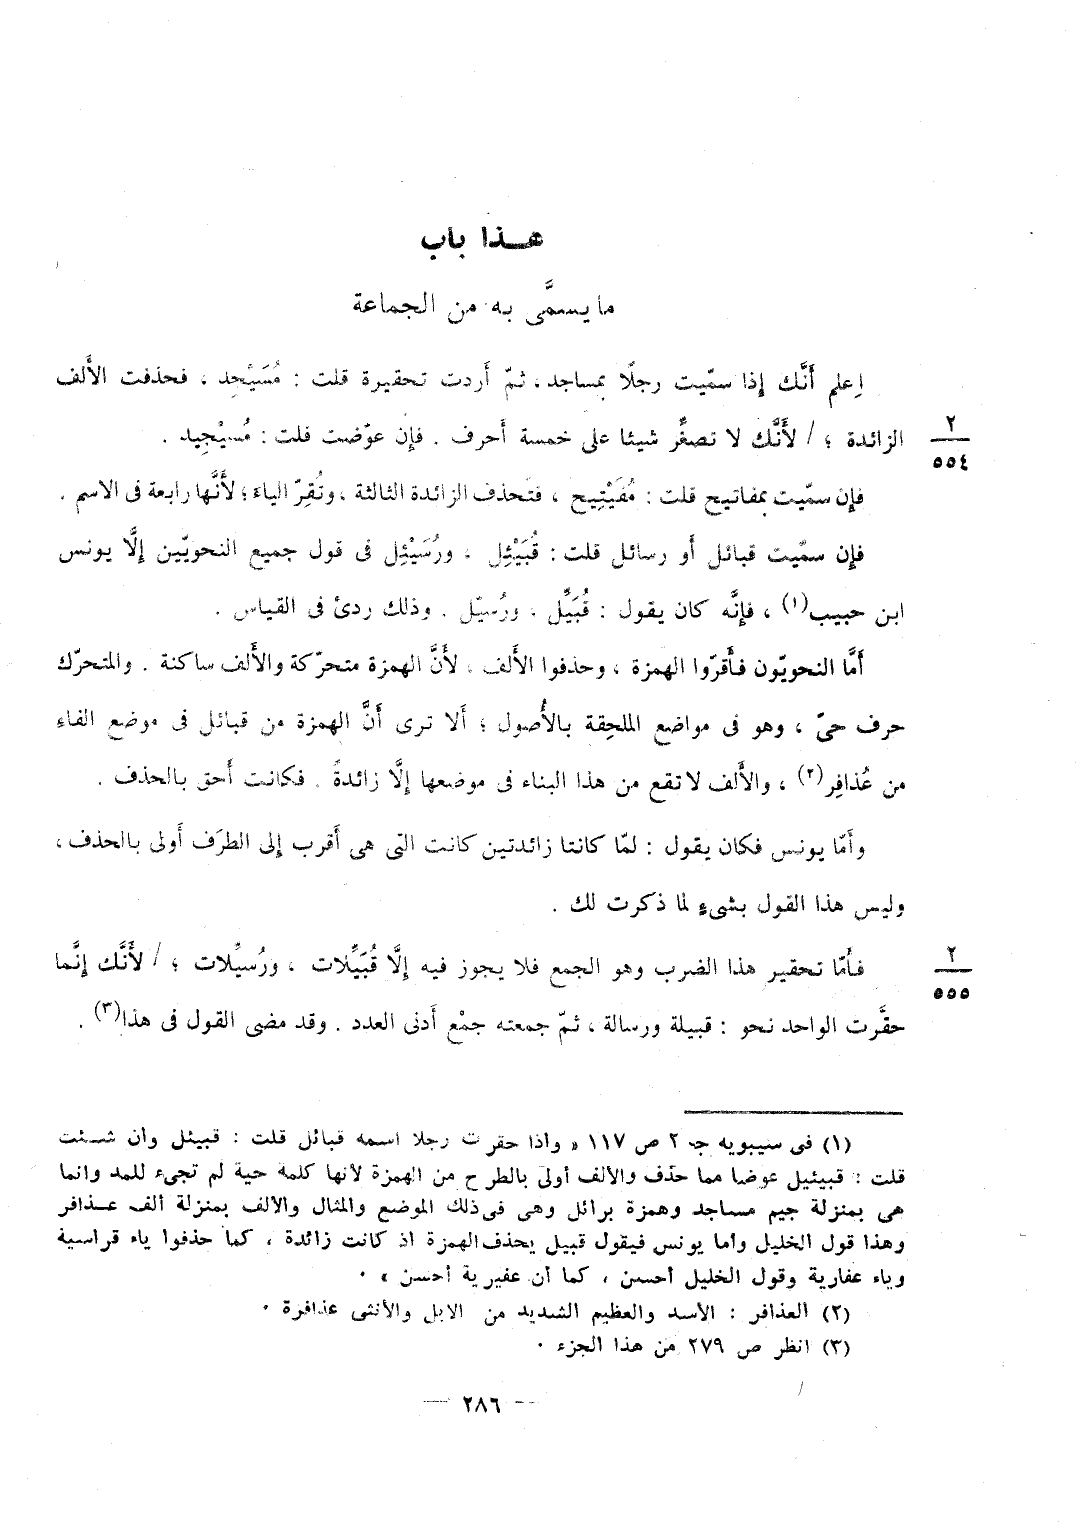 هـذا باب
ما يسمَّى به من الجماعة
اِعلم أَنَّك إذا سمّيت رجلًا بمساجد، ثمّ أَردت تحقيرة قلت : مُسَيْجِد ، فحذفت الأَلف
الزائدة ؛ / لأَنَّك لا تصغِّر شيئا على خمسة أَحرف . فإن عوّضت قلت : مُسيْجِيد .
٢
٥٥٤
فإن سمّيت بمفاتيح قلت : مُفَيْتِيح ، فتحذف الزائدة الثالثة ، وتُقِرّ الياء ؛ لأَنَّها رابعة فى الاسم .
فإن سمّيت قبائل أَو رسائل قلت : قُبَيْئِل ، ورُسَيْئِل فى قول جميع النحويّين إلَّا يونس
ابن حبيب(١) ، فإنَّه كان يقول : قُبَيِّل ، ورُسيّل . وذلك ردئ فى القياس .
أَمَّا النحويّون فأَقرّوا الهمزة ، وحذفوا الأَلف ، لأَنَّ الهمزة متحرّكة والأَلف ساكنة . والمتحرّك
حرف حىّ ، وهو فى مواضع الملحِقة بالأُصول ؛ أَلا ترى أَنَّ الهمزة من قبائل فى موضع الفاء
من عُذافِر(٢) ، والأَلف لا تقع من هذا البناء فى موضعها إلَّا زائدةً . فكانت أَحق بالحذف .
وأَمّا يونس فكان يقول : لمّا كانتا زائدتين كانت التى هى أَقرب إلى الطرَف أَولى بالحذف ،
وليس هذا القول بشىءٍ لما ذكرت لك .
فأَمّا تحقير هذا الضرب وهو الجمع فلا يجوز فيه إلَّا قُبَيِّلات ، ورُسيِّلات ؛ / لأَنَّك إنَّما
٢
٥٥٥
حقَّرت الواحد نحو : قبيلة ورسالة ، ثمّ جمعته جمْع أَدنى العدد . وقد مضى القول فى هذا(٣) .
(١) فى سيبويه جـ ٢ ص ١١٧ « واذا حقرت رجلا اسمه قبائل قلت : قبيئل وان شـئت
قلت : قبيئيل عوضا مما حذف والألف أولى بالطرح من الهمزة لأنها كلمة حية لم تجىء للمد وانما
هى بمنزلة جيم مساجد وهمزة برائل وهى فى ذلك الموضع والمثال والالف بمنزلة ألف عـذافر
وهذا قول الخليل وأما يونس فيقول قبيل يحذف الهمزة اذ كانت زائدة ، كما حذفوا ياء قراسية
وياء عفارية وقول الخليل أحسن ، كما أن عفيرية أحسن » ٠
(٢) العذافر : الأسد والعظيم الشديد من الابل والأنثى عذافرة ٠
(٣) انظر ص ٢٧٩ من هذا الجزء ٠
— ٢٨٦ —